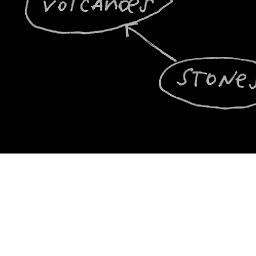 VOLCANOES
STONES